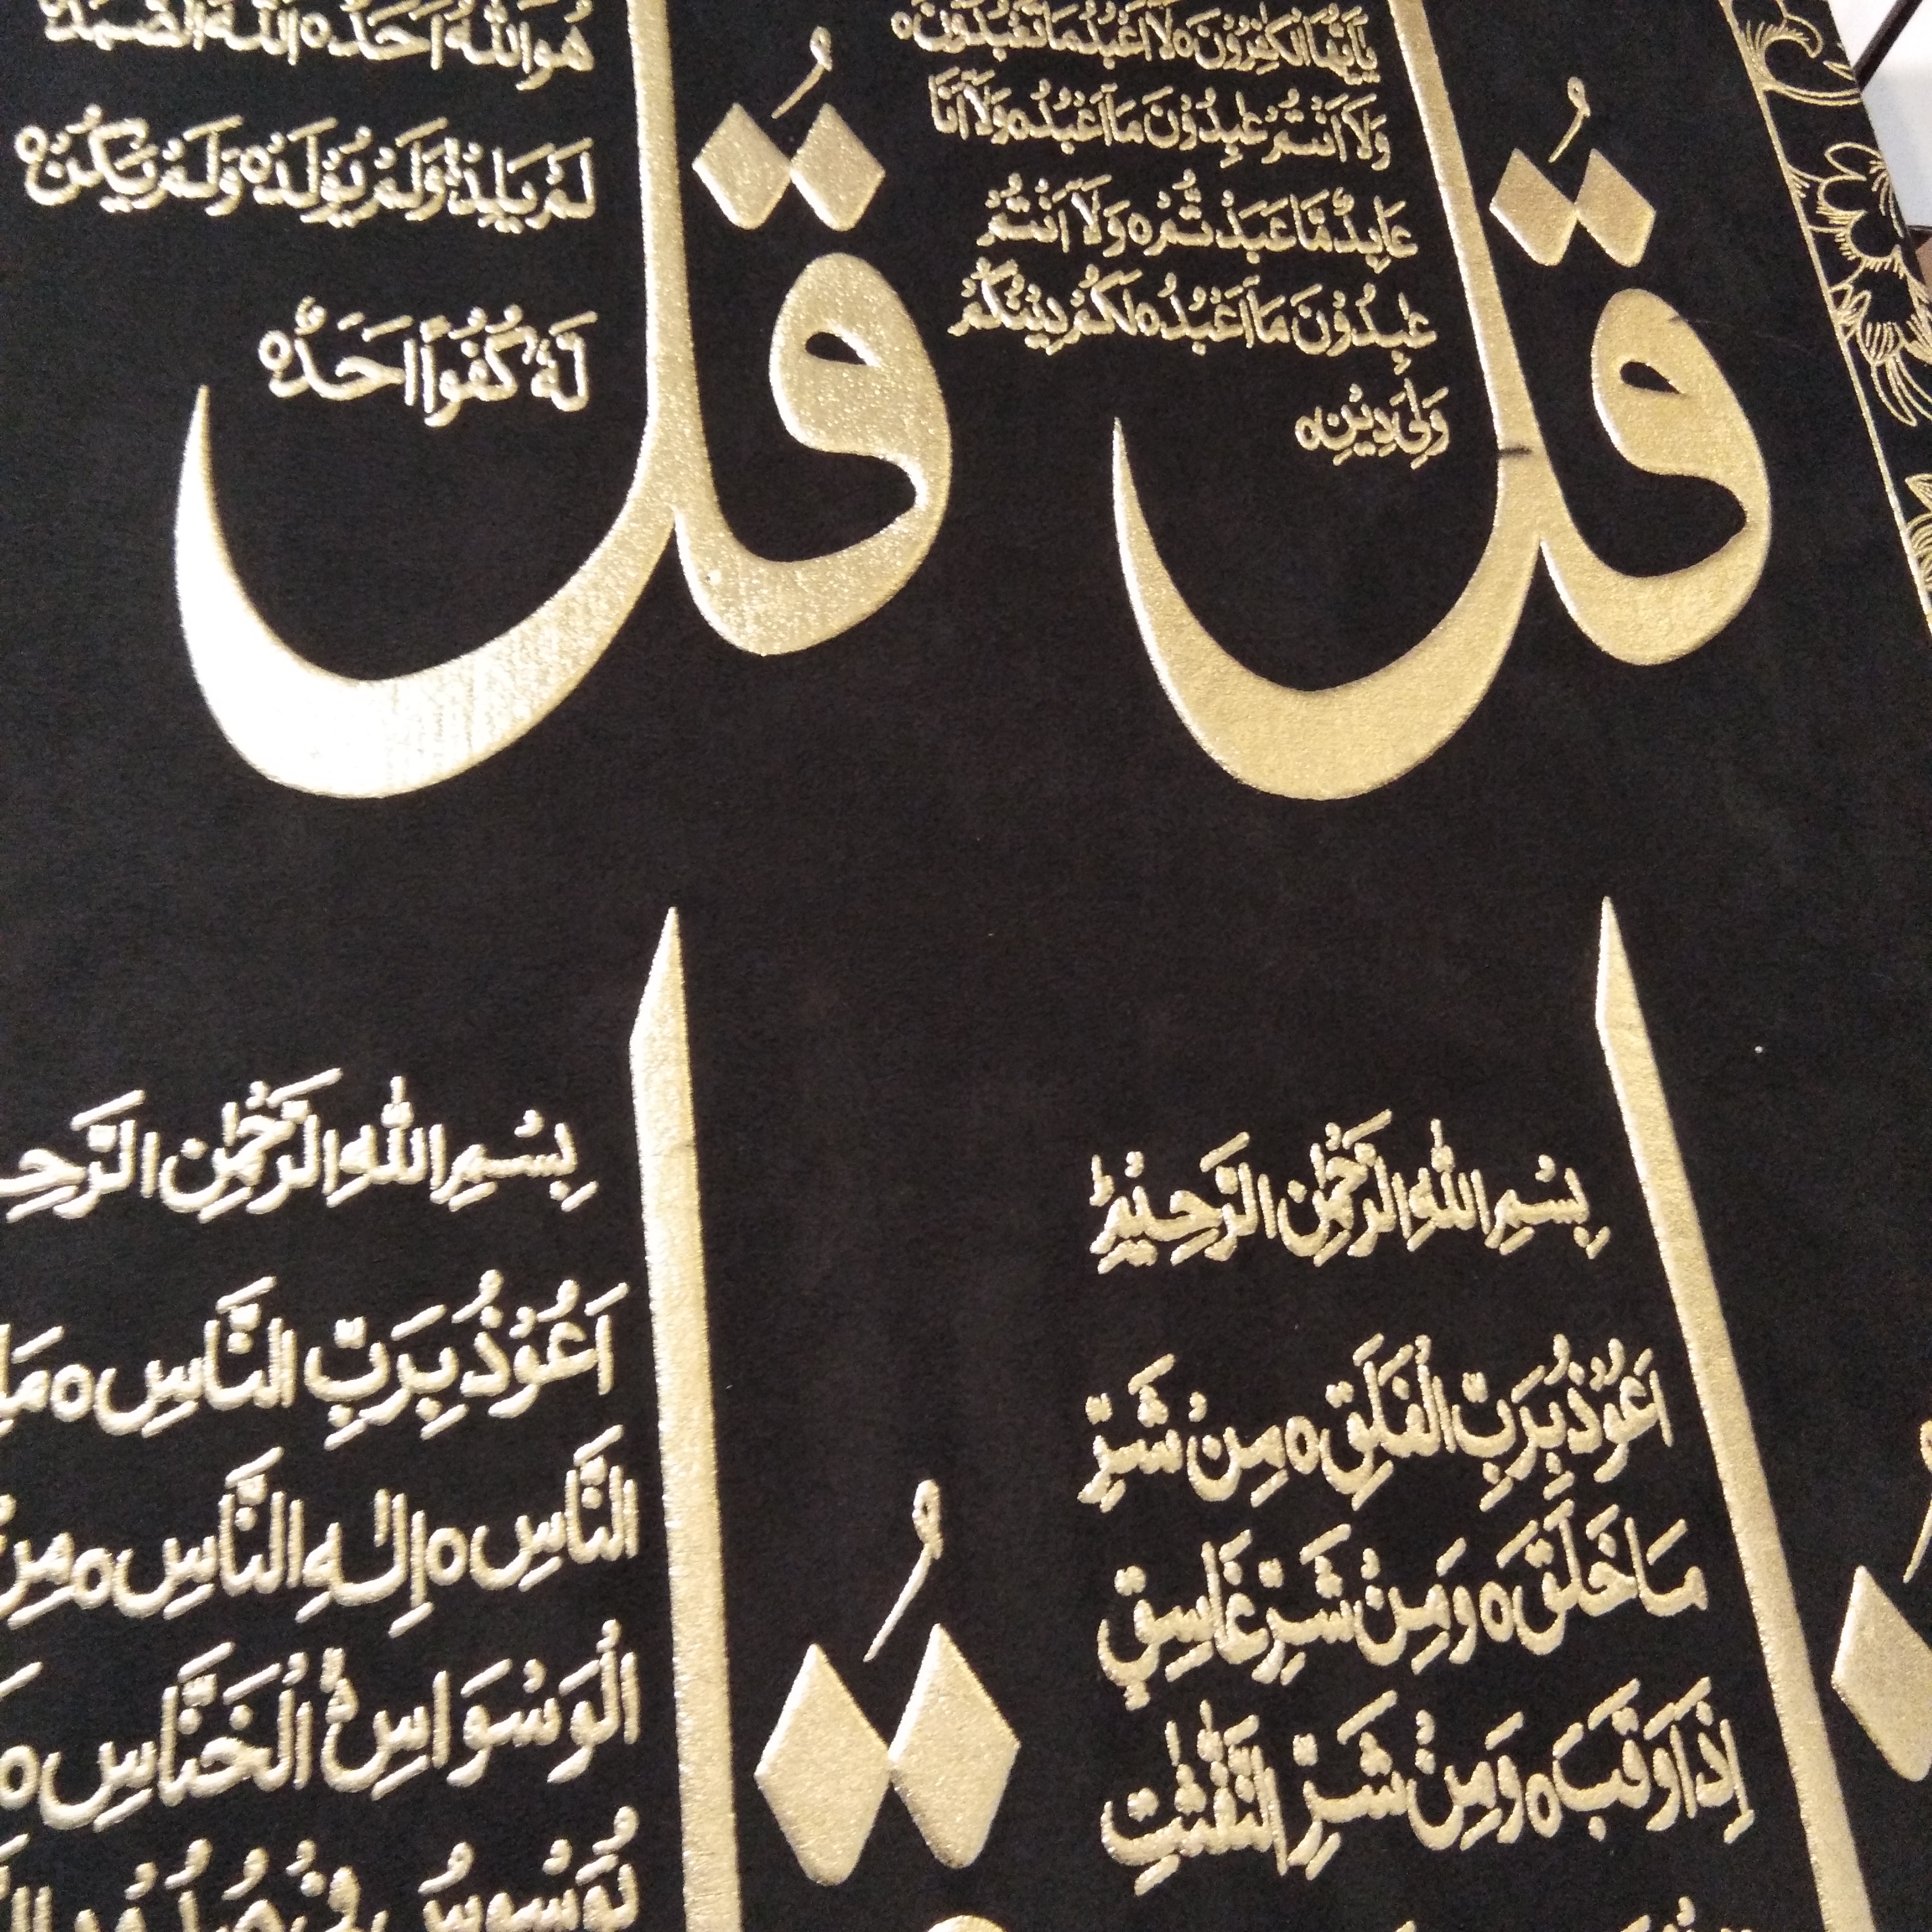 قُلْ
يٰٓاَيُّهَا الْكٰفِرُوْنَ ہ لَآ اَعْبُدُ مَا تَعْبُدُوْنَ ہ
وَلَآ اَنْتُمْ عٰبِدُوْنَ مَآ اَعْبُدُ ہ وَلَآ اَنَا
عَابِدٌ مَّا عَبَدْتُّمْ ہ وَلَآ اَنْتُمْ
عٰبِدُوْنَ مَآ اَعْبُدُ ہ لَكُمْ دِيْنُكُمْ
وَلِيَ دِيْنِ ہ
قُلْ
هُوَ اللّٰهُ اَحَدٌ ہ اَللّٰهُ الصَّمَدُ
لَمْ يَلِدْ ہ وَلَمْ يُوْلَدْ ہ وَلَمْ يَكُنْ
لَّهٗ كُفُوًا اَحَدٌ ہ
بِسْمِ اللّٰهِ الرَّحْمٰنِ الرَّحِيْمِ
اَعُوْذُ بِرَبِّ الْفَلَقِ ہ مِنْ شَرِّ
مَا خَلَقَ ہ وَمِنْ شَرِّ غَاسِقٍ
اِذَا وَقَبَ ہ وَمِنْ شَرِّ النَّفّٰثٰتِ
بِسْمِ اللّٰهِ الرَّحْمٰنِ
اَعُوْذُ بِرَبِّ النَّاسِ ہ
النَّاسِ ہ اِلٰهِ النَّاسِ ہ مِنْ
الْوَسْوَاسِ الْخَنَّاسِ ہ
يُوَسْوِسُ فِيْ صُدُوْرِ